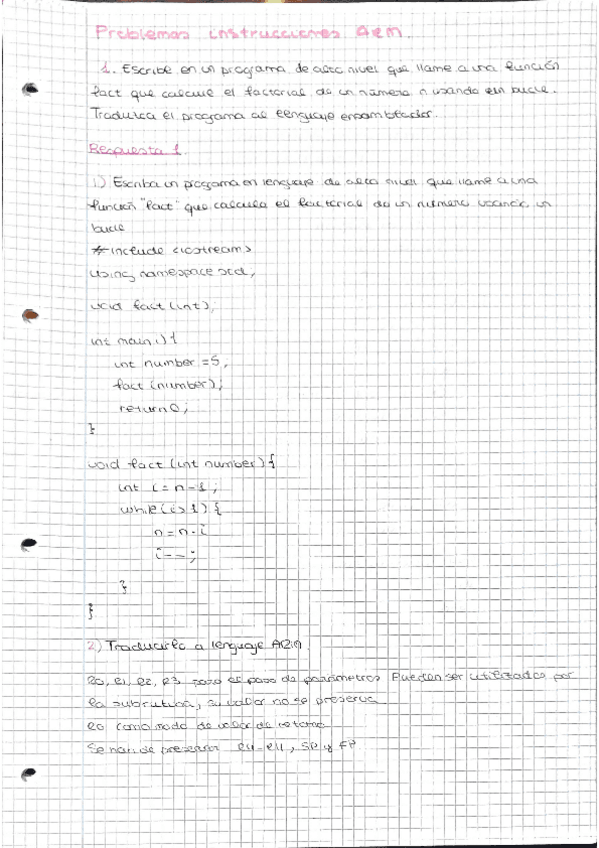 Problemas instrucciones ARM.
1. Escribe en un programa de alto nivel que llame a una función
fact que calcule el factorial de un número n usando un bucle.
Traduzca el programa al lenguaje ensamblador.
Respuesta 1.
1) Escriba un programa en lenguaje de alto nivel que llame a una
función "fact" que calcula el factorial de un número usando un
bucle
#include <iostream>
using namespace std;
void fact (int);
int main () {
int number = 5;
fact (number);
return 0;
}
void fact (int number) {
int i = n-1;
while (i > 1) {
n = n · i
i--;
}
}
2) Traducirlo a lenguaje ARM.
R0, R1, R2, R3 para el paso de parámetros Pueden ser utilizados por
la subrutina, su valor no se preserva
R0 como nodo de valor de retorno
Se han de preservar R4-R11, SP y FP